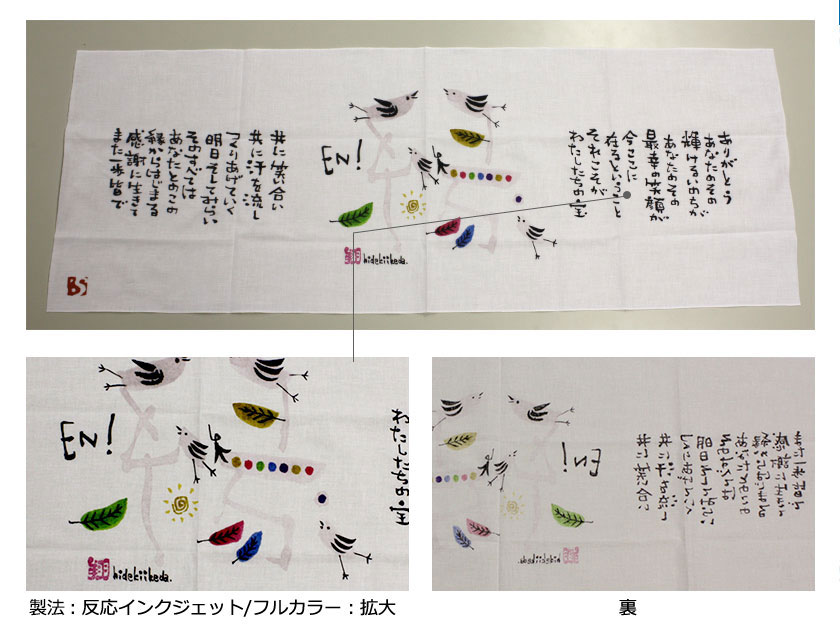 ありがとう
あなたのその
輝けるいのちが
あなたのその
最幸の笑顔が
今ここに
在るということ
それこそが
わたしたちの宝
EN!
hidekiikeda.
共に笑い合い
共に汗を流し
つくりあげていく
明日そしてみらい
そのすべては
あなたとのこの
縁からはじまる
感謝に生きて
また一歩皆で
BS
わたしたちの宝
EN!
hidekiikeda.
製法：反応インクジェット/フルカラー：拡大
裏